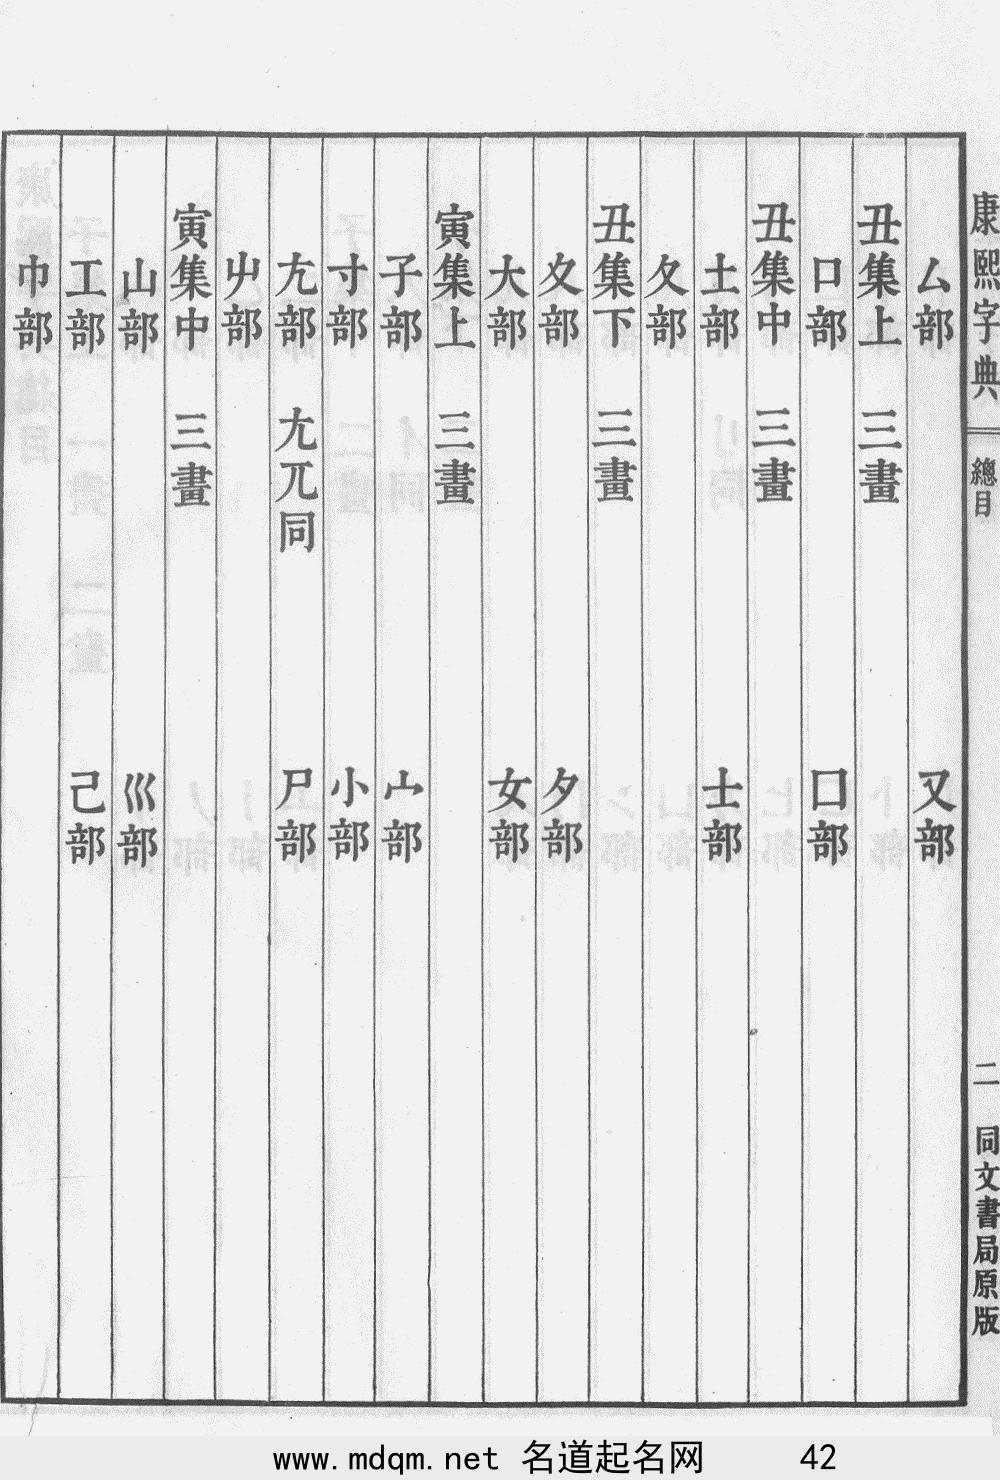 康熙字典 總目 二 同文書局原版
厶部 又部
丑集上 三畫
口部 囗部
丑集中 三畫
土部 士部
夂部
丑集下 三畫
夊部 夕部
大部 女部
寅集上 三畫
子部 宀部
寸部 小部
尢部 尣兀同 尸部
屮部
寅集中 三畫
山部 巛部
工部 己部
巾部
www.mdqm.net 名道起名网 42